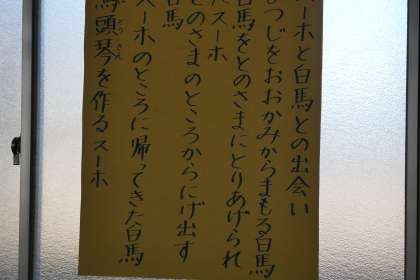 スーホと白馬との出会い
つじをおおかみからまもる白馬
白馬をとのさまにとりあげられ
たスーホ
とのさまのところからにげ出す
白馬
スーホのところに帰ってきた白馬
馬頭琴を作るスーホ